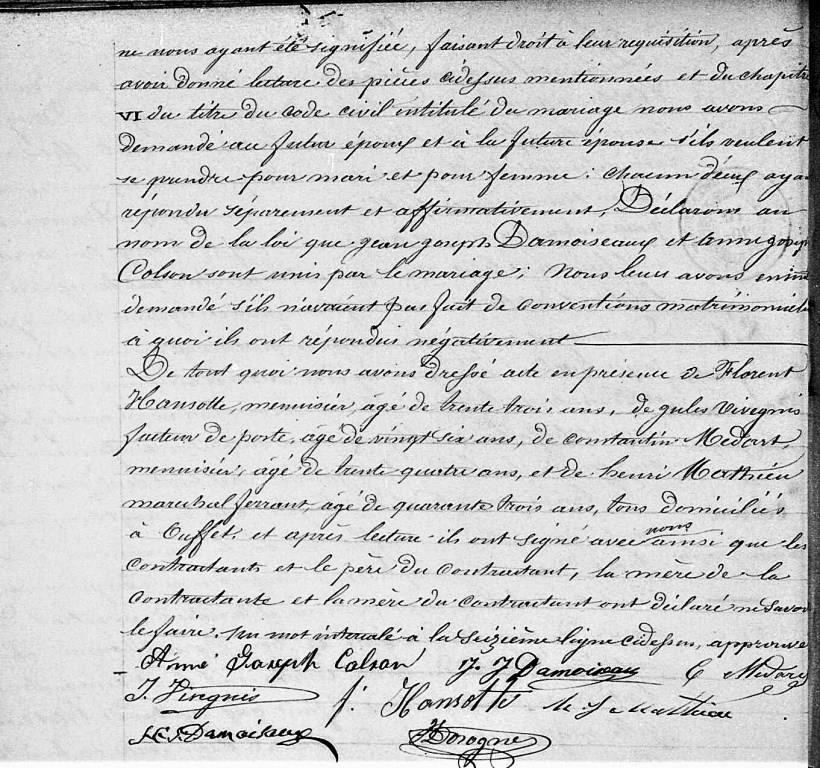 ne nous ayant été signifiée, faisant droit à leur requisition, après
avoir donné lecture des pièces cidessus mentionnées et du chapitre
VI du titre du code civil intitulé du mariage nous avons
demandé au futur époux et à la future épouse s'ils veulent
se prendre pour mari et pour femme: chacun d'eux aya
répondu séparement et affirmativement, Déclarons au
nom de la loi que jean joseph Damoiseaux et anne joseph
Colson sont unis par le mariage; Nous leurs avons
demandé s'ils n'avaient pas fait de conventions matrimoniales
à quoi ils ont répondus négativement
De tout quoi nous avons dressé acte en présence de Florent
Hansotte, menuisier, âgé de trente trois ans, de jules Vivegnis
facteur de poste, âgé de vingt six ans, de constantin Medart,
menuisier, âgé de trente quatre ans, et de henri Mathieu
marechal ferrant, âgé de quarante trois ans, tous domiciliés
à Ouffet, et après lecture ils ont signé avec nous ainsi que les
contractants et le père du contractant, la mère de la
contractante et la mère du contractant ont déclaré ne savoir
le faire. un mot intercalé à la seizième ligne cidessus, approuvé
Anné Joseph Colson J. J Damoiseau C Medart
J. Vivegnis f. Hansotte h. J Mathieu
J.C.J. Damoiseaux